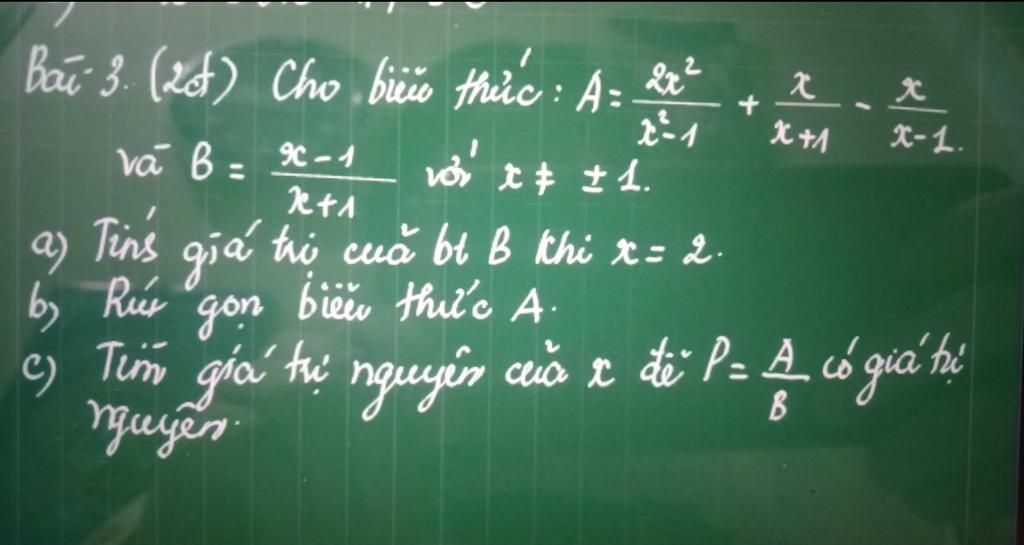 Bài 3. (2đ) Cho biểu thức: A = 2x²/(x²-1) + x/(x+1) - x/(x-1).
và B = (x-1)/(x+1) với x ≠ ±1.
a) Tính giá trị của bt B khi x = 2.
b) Rút gọn biểu thức A.
c) Tìm giá trị nguyên của x để P = A/B có giá trị
nguyên.